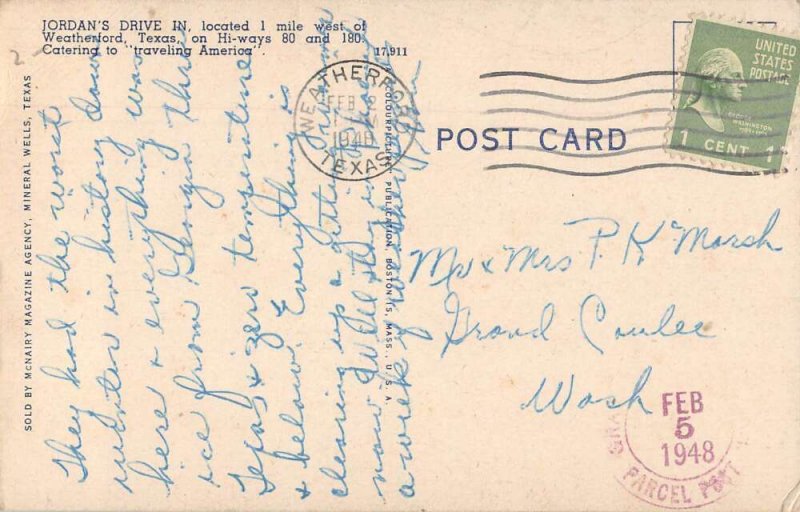 JORDAN'S DRIVE IN, located 1 mile west of
Weatherford, Texas, on Hi-ways 80 and 180.
Catering to "traveling America".
17,911
SOLD BY McNAIRY MAGAZINE AGENCY, MINERAL WELLS, TEXAS
They had the worst
winter in history down
here & everything was
ice from Georgia thru
Texas & zero temperature
& below. Everything is
clearing up & getting warm
now. Will stay in
a week
COLOURPICTURE PUBLICATION, BOSTON 15, MASS., U.S.A.
WEATHERFORD
FEB 2
1948
TEXAS
POST CARD
UNITED
STATES
POSTAGE
GEORGE
WASHINGTON
1 CENT 1
Mr & Mrs P. K McMarsh
Grand Coulee
Wash
FEB
5
1948
PARCEL POST